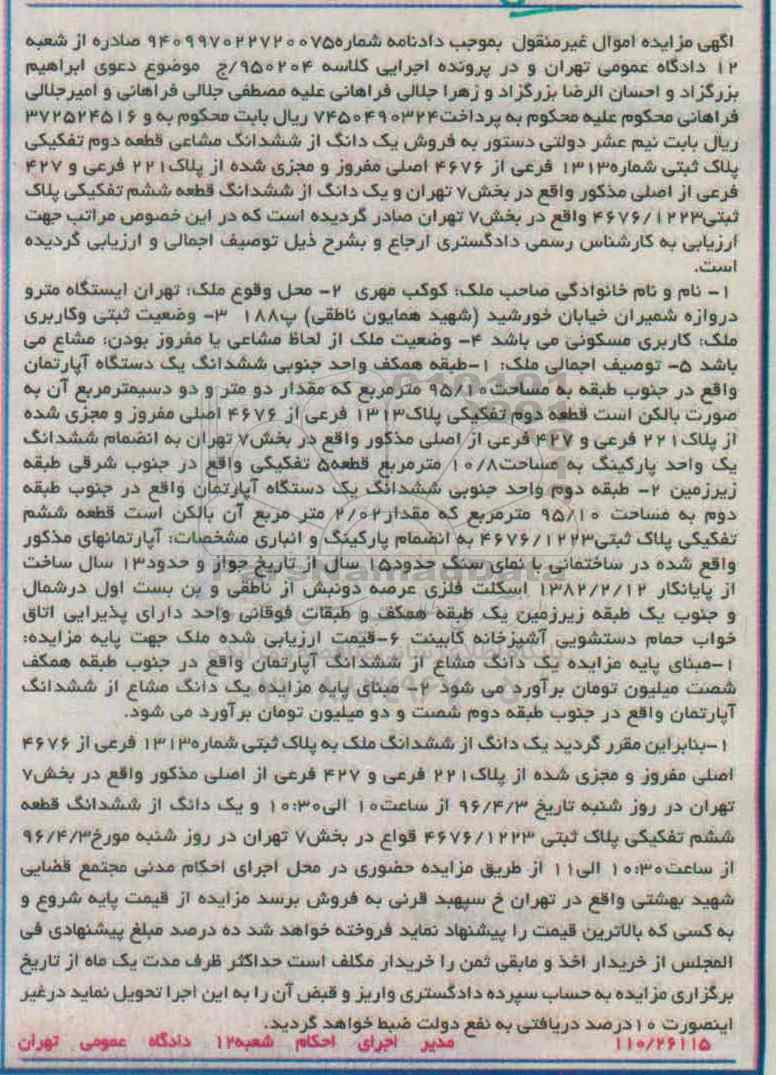 اگهی مزایده اموال غیرمنقول بموجب دادنامه شماره۹۴۰۹۹۷۰۲۲۷۲۰۰۷۵ صادره از شعبه
۱۲ دادگاه عمومی تهران و در پرونده اجرایی کلاسه ۹۵۰۲۰۴/ج موضوع دعوی ابراهیم
بزرگزاد و احسان الرضا بزرگزاد و زهرا جلالی فراهانی علیه مصطفی جلالی فراهانی و امیرجلالی
فراهانی محکوم علیه محکوم به پرداخت۷۴۵۰۴۹۰۳۲۴ ریال بابت محکوم به و ۳۷۲۵۲۴۵۱۶
ریال بابت نیم عشر دولتی دستور به فروش یک دانگ از ششدانگ مشاعی قطعه دوم تفکیکی
پلاک ثبتی شماره۱۳۱۳ فرعی از ۴۶۷۶ اصلی مفروز و مجزی شده از پلاک۲۲۱ فرعی و ۴۲۷
فرعی از اصلی مذکور واقع در بخش۷ تهران و یک دانگ از ششدانگ قطعه ششم تفکیکی پلاک
ثبتی۴۶۷۶/۱۲۲۳ واقع در بخش۷ تهران صادر گردیده است که در این خصوص مراتب جهت
ارزیابی به کارشناس رسمی دادگستری ارجاع و بشرح ذیل توصیف اجمالی و ارزیابی گردیده
است.
۱- نام و نام خانوادگی صاحب ملک: کوکب مهری ۲- محل وقوع ملک: تهران ایستگاه مترو
دروازه شمیران خیابان خورشید (شهید همایون ناطقی) پ۱۸۸ ۳- وضعیت ثبتی وکاربری
ملک: کاربری مسکونی می باشد ۴- وضعیت ملک از لحاظ مشاعی یا مفروز بودن: مشاع می
باشد ۵- توصیف اجمالی ملک: ۱-طبقه همکف واحد جنوبی ششدانگ یک دستگاه آپارتمان
واقع در جنوب طبقه به مساحت۹۵/۱۰ مترمربع که مقدار دو متر و دو دسیمترمربع آن به
صورت بالکن است قطعه دوم تفکیکی پلاک۱۳۱۳ فرعی از ۴۶۷۶ اصلی مفروز و مجزی شده
از پلاک۲۲۱ فرعی و ۴۲۷ فرعی از اصلی مذکور واقع در بخش۷ تهران به انضمام ششدانگ
یک واحد پارکینگ به مساحت۱۰/۸ مترمربع قطعه۵ تفکیکی واقع در جنوب شرقی طبقه
زیرزمین ۲- طبقه دوم واحد جنوبی ششدانگ یک دستگاه آپارتمان واقع در جنوب طبقه
دوم به مساحت ۹۵/۱۰ مترمربع که مقدار۲/۰۲ متر مربع آن بالکن است قطعه ششم
تفکیکی پلاک ثبتی۴۶۷۶/۱۲۲۳ به انضمام پارکینگ و انباری مشخصات: آپارتمانهای مذکور
واقع شده در ساختمانی با نمای سنگ حدود۱۵ سال از تاریخ جواز و حدود۱۳ سال ساخت
از پایانکار ۱۳۸۲/۲/۱۲ اسکلت فلزی عرصه دونبش از ناطقی و بن بست اول درشمال
و جنوب یک طبقه زیرزمین یک طبقه همکف و طبقات فوقانی واحد دارای پذیرایی اتاق
خواب حمام دستشویی آشپزخانه کابینت ۶-قیمت ارزیابی شده ملک جهت پایه مزایده:
۱-مبنای پایه مزایده یک دانگ مشاع از ششدانگ آپارتمان واقع در جنوب طبقه همکف
شصت میلیون تومان برآورد می شود ۲- مبنای پایه مزایده یک دانگ مشاع از ششدانگ
آپارتمان واقع در جنوب طبقه دوم شصت و دو میلیون تومان برآورد می شود.
۱-بنابراین مقرر گردید یک دانگ از ششدانگ ملک به پلاک ثبتی شماره۱۳۱۳ فرعی از ۴۶۷۶
اصلی مفروز و مجزی شده از پلاک۲۲۱ فرعی و ۴۲۷ فرعی از اصلی مذکور واقع در بخش۷
تهران در روز شنبه تاریخ ۹۶/۴/۳ از ساعت۱۰ الی۱۰:۳۰ و یک دانگ از ششدانگ قطعه
ششم تفکیکی پلاک ثبتی ۴۶۷۶/۱۲۲۳ قواع در بخش۷ تهران در روز شنبه مورخ۹۶/۴/۳
از ساعت۱۰:۳۰ الی۱۱ از طریق مزایده حضوری در محل اجرای احکام مدنی مجتمع قضایی
شهید بهشتی واقع در تهران خ سپهبد قرنی به فروش برسد مزایده از قیمت پایه شروع و
به کسی که بالاترین قیمت را پیشنهاد نماید فروخته خواهد شد ده درصد مبلغ پیشنهادی فی
المجلس از خریدار اخذ و مابقی ثمن را خریدار مکلف است حداکثر ظرف مدت یک ماه از تاریخ
برگزاری مزایده به حساب سپرده دادگستری واریز و قبض آن را به این اجرا تحویل نماید درغیر
اینصورت ۱۰درصد دریافتی به نفع دولت ضبط خواهد گردید.
۱۱۰/۲۶۱۱۵ مدیر اجرای احکام شعبه۱۲ دادگاه عمومی تهران